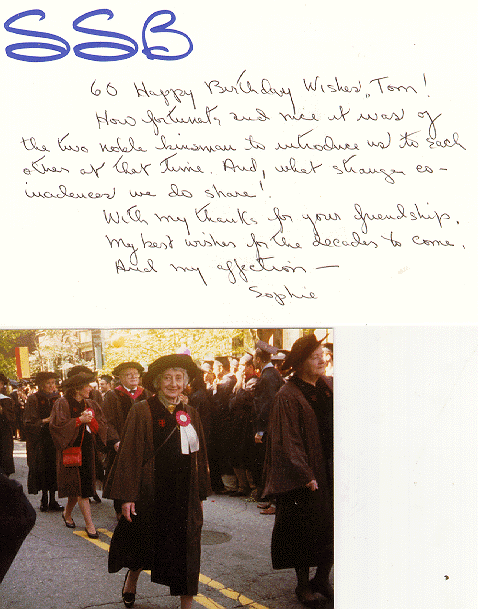 SSB
60 Happy Birthday Wishes, Tom!
How fortunate and nice it was of
the two noble kinsman to introduce us to each
other at that time. And, what strange co-
incidences we do share!
With my thanks for your friendship.
My best wishes for the decades to come.
And my affection —
Sophie